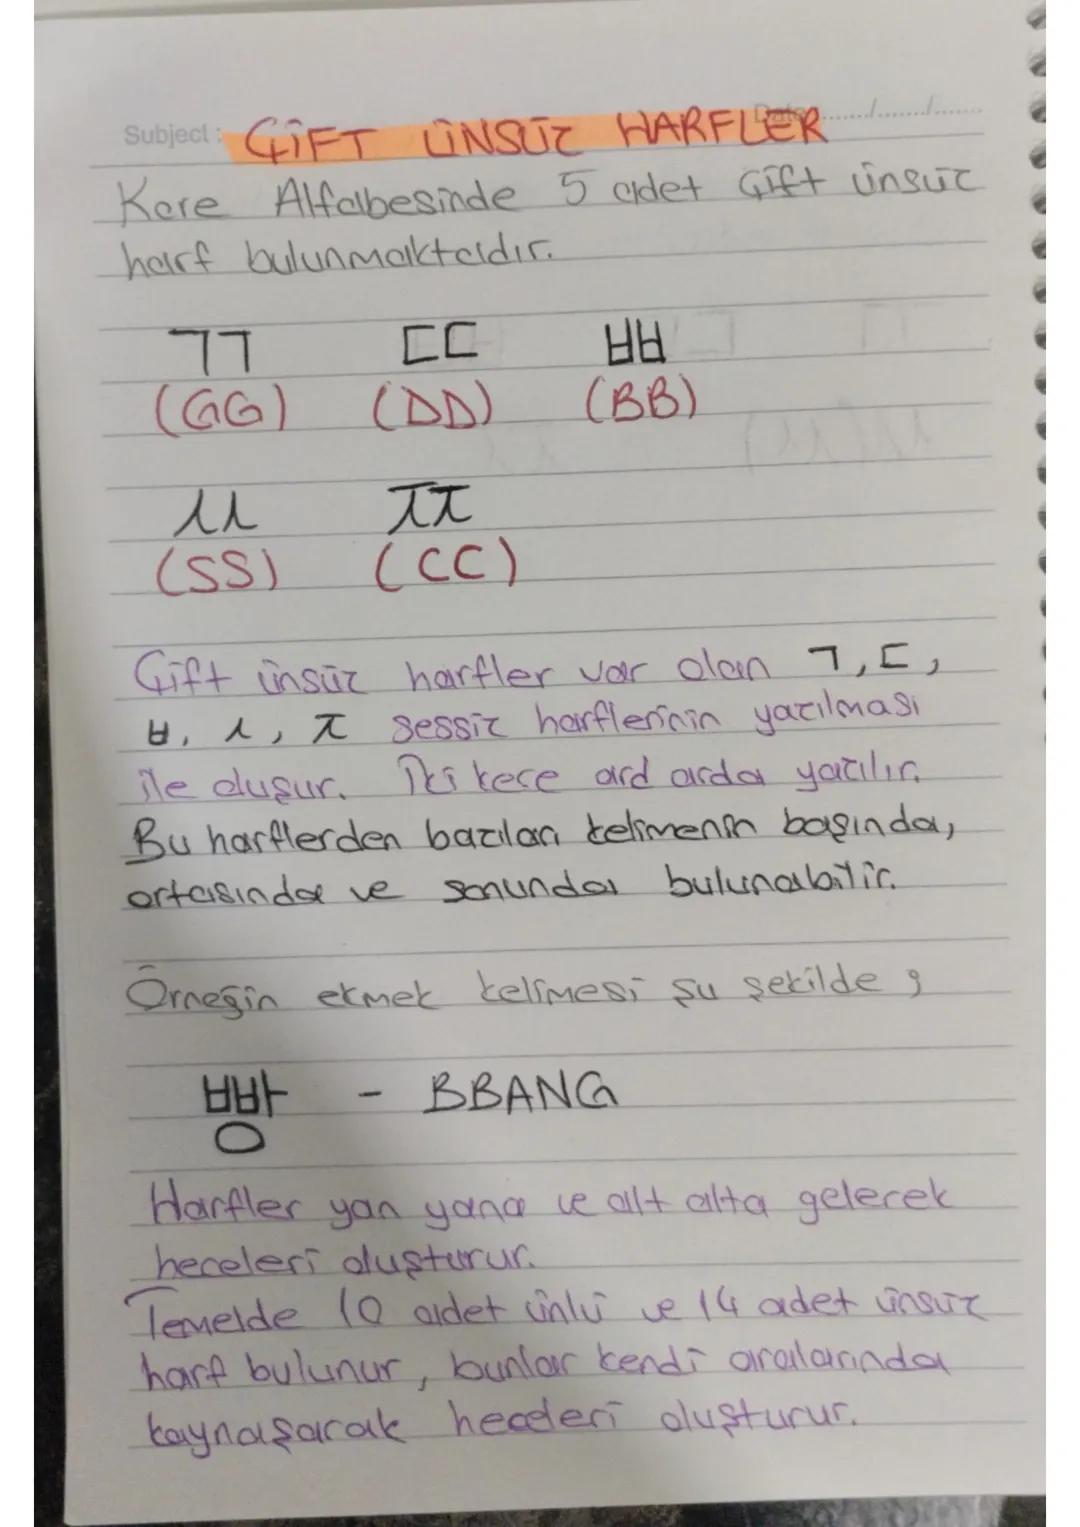 Subject: ÇİFT ÜNSÜZ HARFLER Date ....../....../......
Kore Alfabesinde 5 adet Çift ünsüz
harf bulunmaktadır.
ㄲ ㄸ ㅃ
(GG) (DD) (BB)
ㅆ ㅉ
(SS) (CC)
Çift ünsüz harfler var olan ㄱ, ㄷ,
ㅂ, ㅅ, ㅈ sessiz harflerinin yazılması
ile oluşur. İki kece ard arda yazılır.
Bu harflerden bazıları kelimenin başında,
ortasında ve sonunda bulunabilir.
Örneğin ekmek kelimesi şu şekilde ;
빵 - BBANG
Harfler yan yana ve alt alta gelerek
heceleri oluşturur.
Temelde 10 adet ünlü ve 14 adet ünsüz
harf bulunur, bunlar kendi aralarında
kaynaşarak heceleri oluşturur.